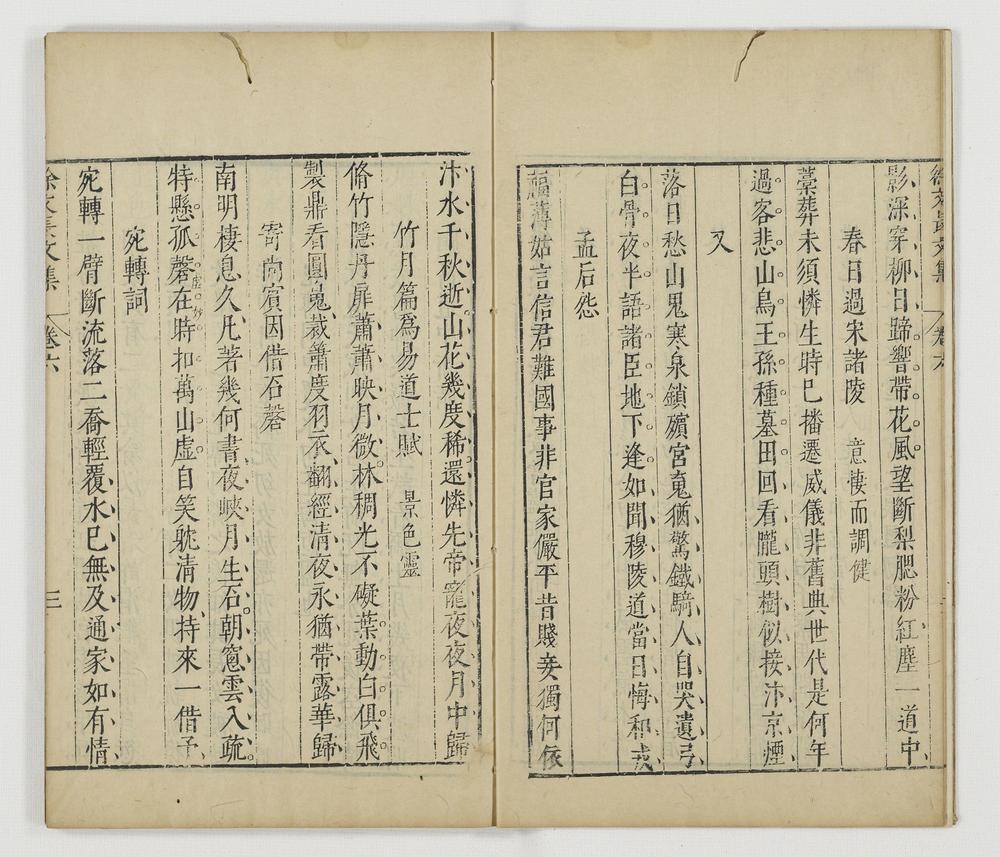 徐文長文集 卷六
影深穿柳日蹄響帶花風望斷梨肥粉紅塵一道中
春日過宋諸陵 意悽而調健
藁葬未須憐生時已播遷威儀非舊典世代是何年
過客悲山鳥王孫種墓田回看隴頭樹似接汴京煙
又
落日愁山鬼寒泉鎖殯宮䰟猶驚鐵騎人自哭遺弓
白骨夜半語諸臣地下逢如聞穆陵道當日悔和戎
孟后怨
薄姑言信君難國事非官家儼平昔賤妾獨何依
汴水千秋逝山花幾度稀還憐先帝寵夜夜月中歸
竹月篇爲易道士賦 景色靈
脩竹隱丹扉蕭蕭映月微林稠光不礙葉動白俱飛
製鼎看圓䰟裁簫度羽衣翻經清夜永猶帶露華歸
寄尚賓因借石磬
南明棲息久凡著幾何書夜峽月生石朝窻雲入疏
特懸孤磬在時扣萬山虛自笑躭清物持來一借予
虛妙
宛轉詞
宛轉一臂斷流落二喬輕覆水已無及通家如有情
徐文長文集 卷六 三